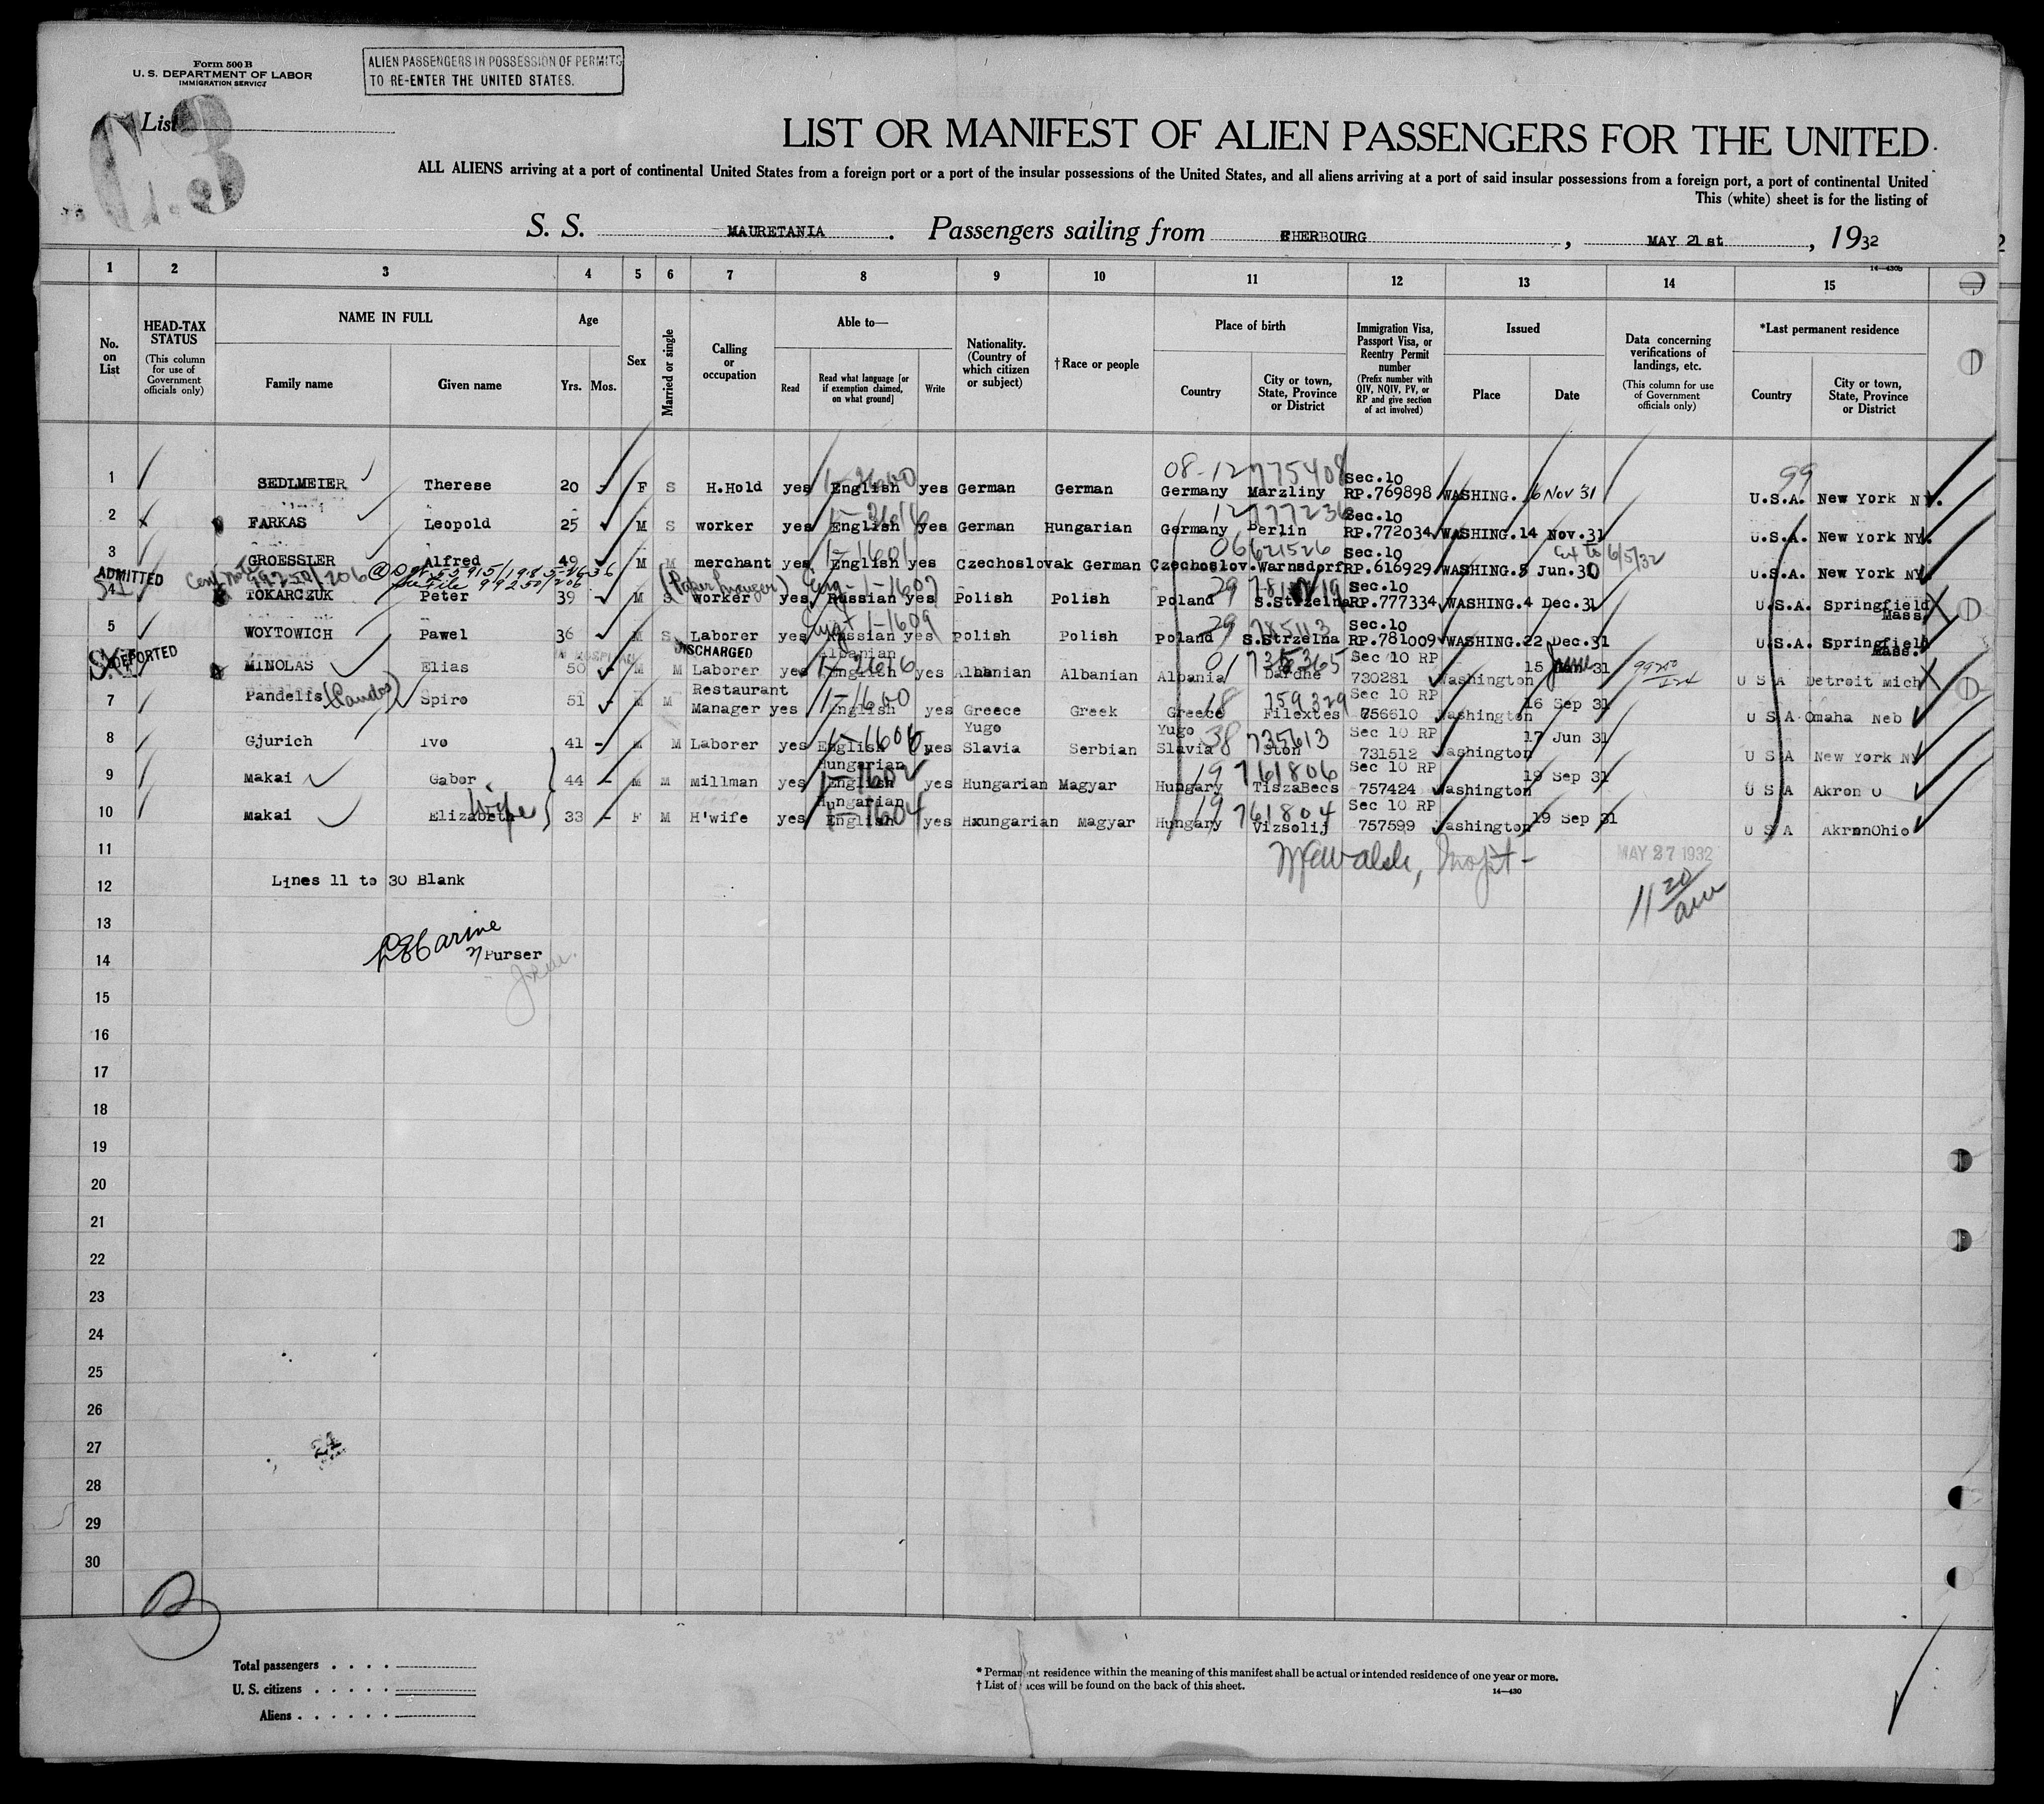 Form 500 B
U. S. DEPARTMENT OF LABOR
IMMIGRATION SERVICE
ALIEN PASSENGERS IN POSSESSION OF PERMITS
TO RE-ENTER THE UNITED STATES.
List
C.3
LIST OR MANIFEST OF ALIEN PASSENGERS FOR THE UNITED
ALL ALIENS arriving at a port of continental United States from a foreign port or a port of the insular possessions of the United States, and all aliens arriving at a port of said insular possessions from a foreign port, a port of continental United
This (white) sheet is for the listing of
S. S. MAURETANIA . Passengers sailing from CHERBOURG , MAY 21st , 1932
14—430b
1 2 3 4 5 6 7 8 9 10 11 12 13 14 15
No. on List
HEAD-TAX STATUS (This column for use of Government officials only)
NAME IN FULL
Family name Given name
Age
Yrs. Mos.
Sex
Married or single
Calling or occupation
Able to—
Read Read what language [or if exemption claimed, on what ground] Write
Nationality. (Country of which citizen or subject)
†Race or people
Place of birth
Country City or town, State, Province or District
Immigration Visa, Passport Visa, or Reentry Permit number (Prefix number with QIV, NQIV, PV, or RP and give section of act involved)
Issued
Place Date
Data concerning verifications of landings, etc. (This column for use of Government officials only)
*Last permanent residence
Country City or town, State, Province or District
08-12 775408 99
1 SEDLMEIER Therese 20 - F S H.Hold yes English yes German German Germany Marzliny Sec.10 RP.769898 WASHING. 6 Nov 31 U.S.A. New York NY.
12 777236
2 FARKAS Leopold 25 M S worker yes English yes German Hungarian Germany Berlin Sec.10 RP.772034 WASHING. 14 Nov.31 U.S.A. New York NY.
1-1601 06 621526 Ext to 6/5/32
3 GROESSLER Alfred 49 M M merchant yes English yes Czechoslovak German Czechoslov. Warnsdorf Sec.10 RP.616929 WASHING. 5 Jun.30 U.S.A. New York NY
ADMITTED 99250/206 (Paper hanger) Eng 1-1607 29
4 TOKARCZUK Peter 39 - M S worker yes Russian yes Polish Polish Poland S.Strzelna Sec.10 RP.777334 WASHING. 4 Dec.31 U.S.A. Springfield Mass.
1-1609 29 785113
5 WOYTOWICH Pawel 36 M S Laborer yes Russian yes Polish Polish Poland S.Strzelna Sec.10 RP.781009 WASHING. 22 Dec.31 U.S.A. Springfield Mass.
DEPORTED IN HOSPITAL DISCHARGED Albanian 01 735365
MINOLAS Elias 50 - M M Laborer yes English yes Albanian Albanian Albania Dardhe Sec 10 RP 730281 Washington 15 June 31 U S A Detroit Mich
1-1600 18 759329
7 Pandelis (Pandos) Spiro 51 - M M Restaurant Manager yes English yes Greece Greek Greece Filextes Sec 10 RP 756610 Washington 16 Sep 31 U S A Omaha Neb
38 735613
8 Gjurich Ivo 41 - M M Laborer yes English yes Yugo Slavia Serbian Yugo Slavia Ston Sec 10 RP 731512 Washington 17 Jun 31 U S A New York NY
1-1602 19 761806
9 Makai Gabor 44 - M M Millman yes Hungarian English yes Hungarian Magyar Hungary TiszaBecs Sec 10 RP 757424 Washington 19 Sep 31 U S A Akron O
wife 1-1604 19 761804
10 Makai Elizabeth 33 - F M H'wife yes Hungarian English yes Hxungarian Magyar Hungary Vizsolij Sec 10 RP 757599 Washington 19 Sep 31 U S A AkronOhio
11 MAY 27 1932
12 Lines 11 to 30 Blank 11 20/am
13
Purser
14
15
16
17
18
19
20
21
22
23
24
25
26
27
28
29
30
B
Total passengers . . . .
U. S. citizens . . . . .
Aliens . . . . . .
* Permanent residence within the meaning of this manifest shall be actual or intended residence of one year or more.
† List of races will be found on the back of this sheet.
14—430